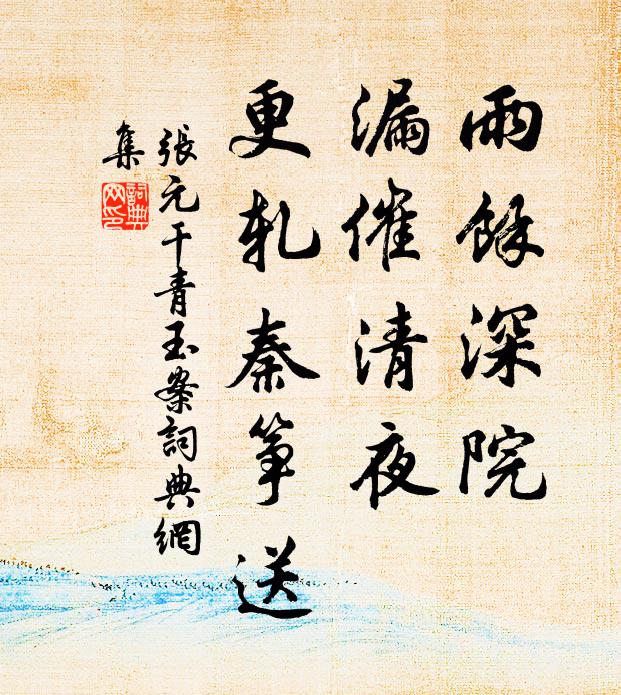 雨餘深院
漏催清夜
更軋秦箏送
張元干青玉案詞典網
集
詞典网印